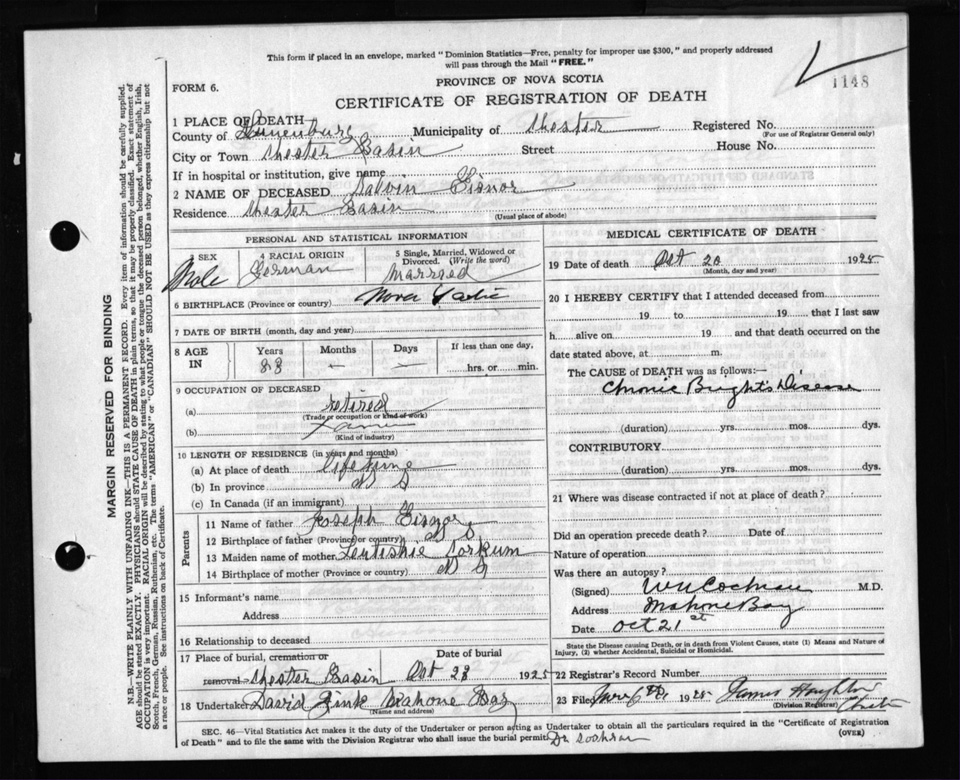 This form if placed in an envelope, marked "Dominion Statistics—Free, penalty for improper use $300," and properly addressed
will pass through the Mail "FREE."
1148
FORM 6.
PROVINCE OF NOVA SCOTIA
CERTIFICATE OF REGISTRATION OF DEATH
1 PLACE OF DEATH
County of Lunenburg Municipality of Chester Registered No.
(For use of Registrar General only)
City or Town Chester Basin Street House No.
If in hospital or institution, give name
2 NAME OF DECEASED Calvin Eisnor
Residence Chester Basin
(Usual place of abode)
PERSONAL AND STATISTICAL INFORMATION
SEX Male
4 RACIAL ORIGIN German
5 Single, Married, Widowed or Divorced. (Write the word) Married
6 BIRTHPLACE (Province or country) Nova Scotia
7 DATE OF BIRTH (month, day and year)
8 AGE IN Years 83 Months — Days — If less than one day, hrs. or min.
9 OCCUPATION OF DECEASED
(a) retired
(Trade or occupation or kind of work)
(b)
(Kind of industry)
10 LENGTH OF RESIDENCE (in years and months)
(a) At place of death life time
(b) In province
(c) In Canada (if an immigrant)
Parents
11 Name of father Joseph Eisnor
12 Birthplace of father (Province or country) N S
13 Maiden name of mother Corkum
14 Birthplace of mother (Province or country) N S
15 Informant's name
Address
16 Relationship to deceased
17 Place of burial, cremation or removal Chester Basin Date of burial Oct 23 1925
18 Undertaker David Zink Mahone Bay
(Name and address)
MEDICAL CERTIFICATE OF DEATH
19 Date of death Oct 20 1925
(Month, day and year)
20 I HEREBY CERTIFY that I attended deceased from
19 to 19 that I last saw
h alive on 19 and that death occurred on the
date stated above, at m.
The CAUSE of DEATH was as follows:—
Chronic Bright's Disease
(duration) yrs. mos. dys.
CONTRIBUTORY.
(duration) yrs. mos. dys.
21 Where was disease contracted if not at place of death?
Did an operation precede death? Date of
Nature of operation
Was there an autopsy?
(Signed) Cochran M.D.
Address Mahone Bay
Date Oct 21st
State the Disease causing Death, or in death from Violent Causes, state (1) Means and Nature of
Injury, (2) whether Accidental, Suicidal or Homicidal.
22 Registrar's Record Number
23 Filed 1925 James
(Division Registrar) Chester
SEC. 46—Vital Statistics Act makes it the duty of the Undertaker or person acting as Undertaker to obtain all the particulars required in the "Certificate of Registration
of Death" and to file the same with the Division Registrar who shall issue the burial permit. Dr Cochran
(OVER)
MARGIN RESERVED FOR BINDING
N.B.—WRITE PLAINLY WITH UNFADING INK—THIS IS A PERMANENT RECORD. Every item of information should be carefully supplied.
AGE should be stated EXACTLY. PHYSICIANS should STATE CAUSE OF DEATH in plain terms, so that it may be properly classified. Exact statement of
OCCUPATION is very important. RACIAL ORIGIN will be described by stating to what people or tongue the deceased person belonged, whether English, Irish,
Scotch, French, German, Russian, Ruthenian, etc. The terms "AMERICAN" or "CANADIAN" SHOULD NOT BE USED as they express citizenship but not
a race or people. See instructions on back of Certificate.